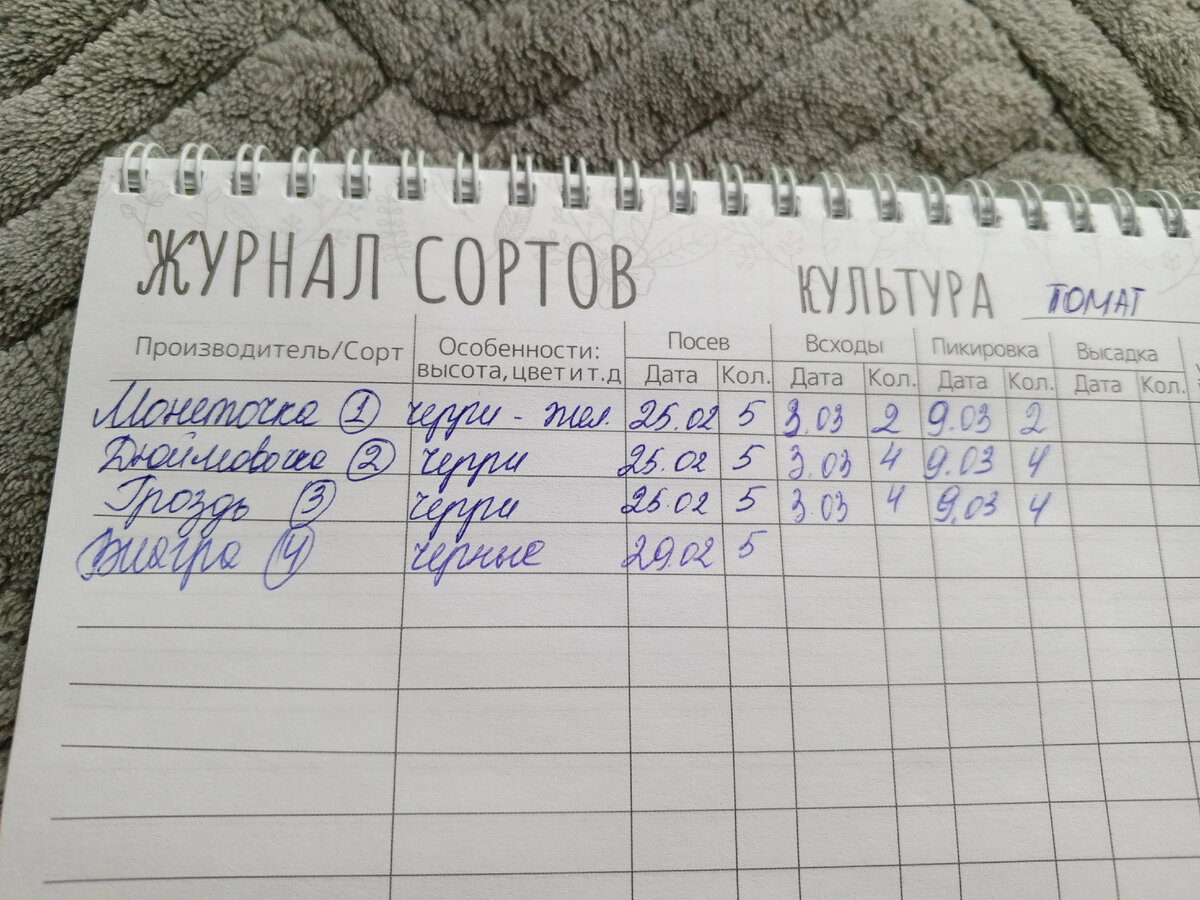 ЖУРНАЛ СОРТОВ КУЛЬТУРА ТОМАТ
Производитель/Сорт Особенности: высота, цвет и т.д Посев Всходы Пикировка Высадка
Дата Кол. Дата Кол. Дата Кол. Дата Кол.
Монеточка 1 черри - жел. 25.02 5 3.03 2 9.03 2
Дюймовочка 2 черри 25.02 5 3.03 4 9.03 4
Гроздь 3 черри 25.02 5 3.03 4 9.03 4
Виагра 4 черные 29.02 5